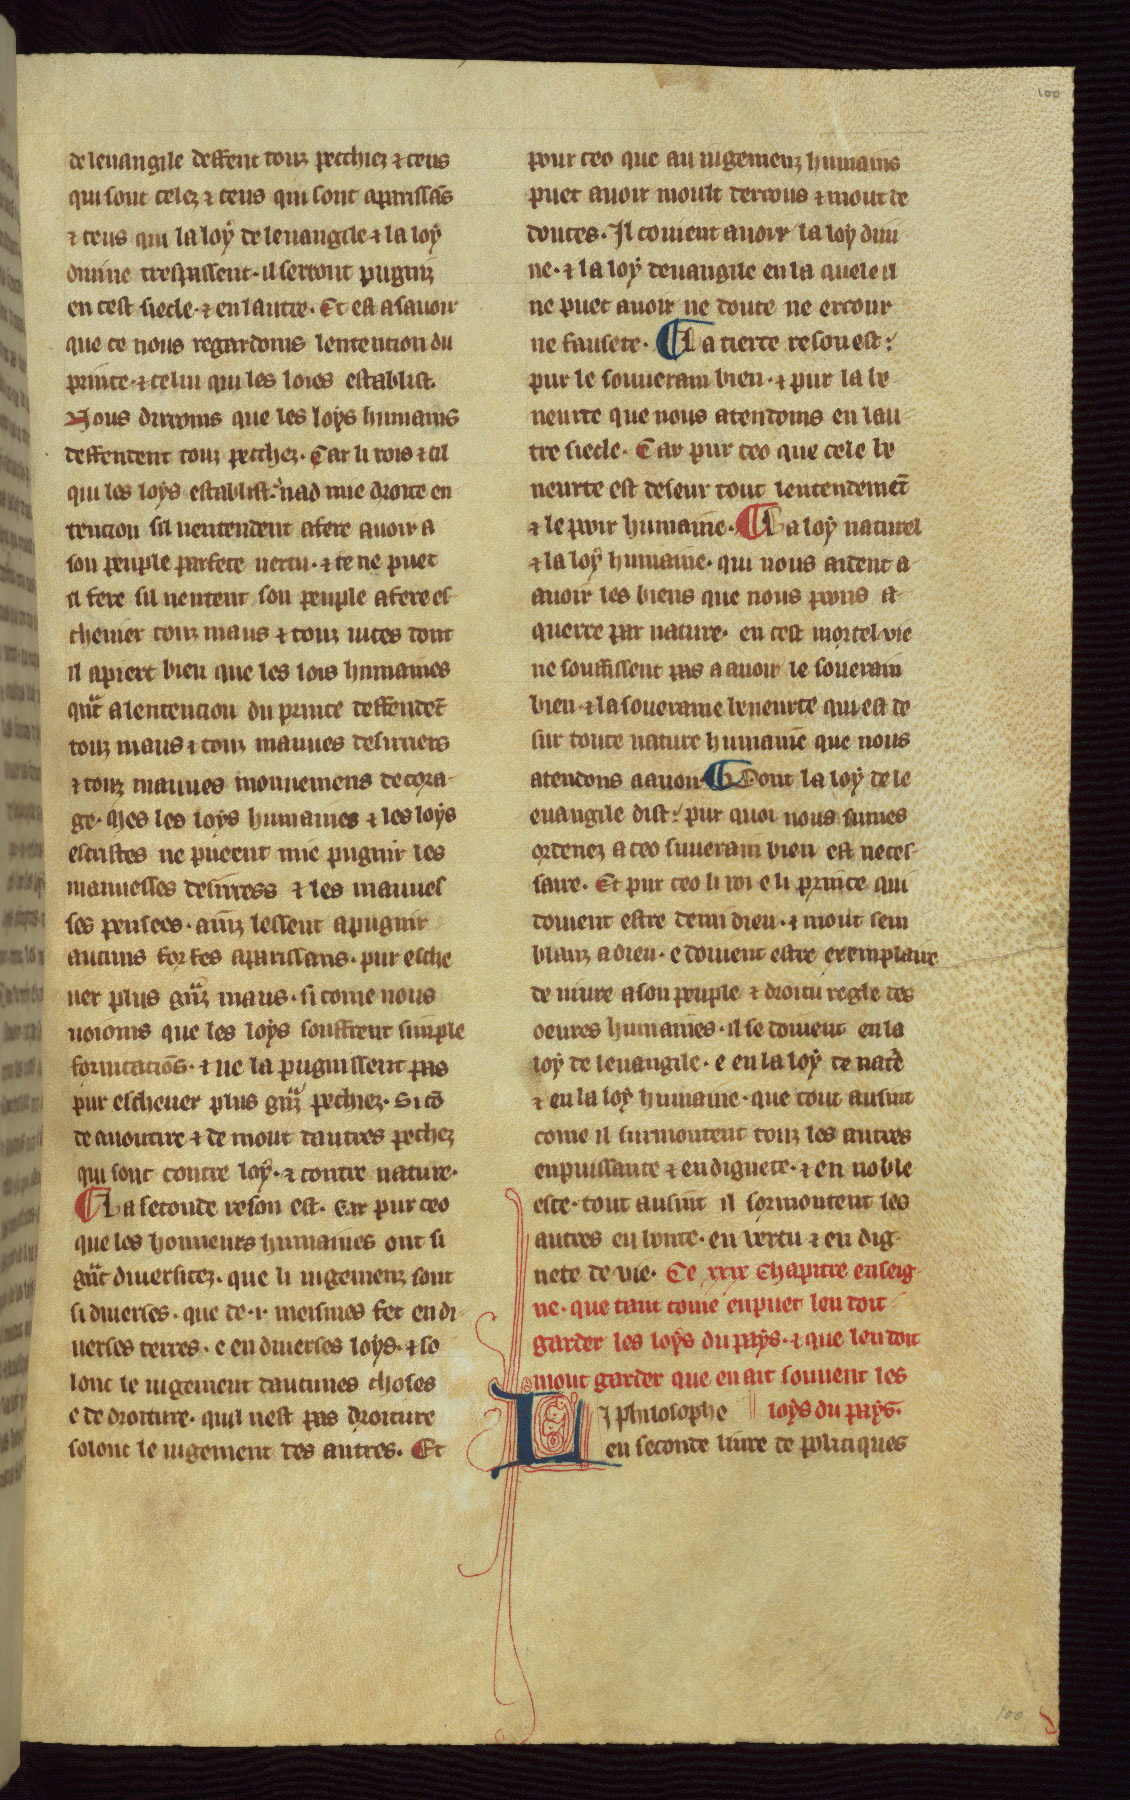 100
de leuangile deffent touz pecchiez ⁊ ceus
qui sont celez ⁊ ceus qui sont aparissãs
⁊ ceus qui la loy de leuangile ⁊ la loy
diuine trespassent· il serront pugniz
en cest siecle· ⁊ en lautre· Et est asauoir
que ce nous regardoms lentencion du
prince· ⁊ celui qui les loies establist.
Nous dirroms que les loys humains
deffendent touz pecchez· Car li rois ⁊ cil
qui les loys establist· nad mie droite en
tencion sil nentendent afere auoir a
son peuple parfete uertu· ⁊ ce ne puet
il fere sil nentent son peuple afere es
cheuier touz maus ⁊ touz uices dont
il apiert bien que les lois humaines
quãt alentencion du prince deffendẽt
touz maus ⁊ touz mauues desirriers
⁊ touz mauues mouuemens de cora-
ge· Mes les loys humaines ⁊ les loys
escristes ne pueent mie pugnir les
mauuesses desirress ⁊ les mauues
ses pensees· ainz lessent apugnir
aucuns forfes aparissans· pur esche
uer plus grãz maus· si come nous
uoioms que les loys souffrent simple
fornicaciõs· ⁊ ne la pugnissent pas
pur escheuer plus grãz pechiez· Si cõ
de auoutire ⁊ de mout dautres pechez
qui sont contre loy· ⁊ contre nature·
La seconde reson est. Car pur ceo
que les honneurs humaines ont si
grãt diuersitez· que li iugemenz sont
si diuerses· que de ·i· meismes fet en di-
uerses terres· e en diuerses loys· ⁊ so
lonc le iugement daucunes choses
e de droiture· qui nest pas droiture
solonc le iugement des autres. Et
pour ceo que au iugemenz humains
puet auoir moult derrous ⁊ mout de
doutes· Il couient auoir la loy diui
ne· ⁊ la loy deuangile en la quele il
ne puet auoir ne doute ne errour
ne fausete· La tierce reson est:
pur le souuerain bien· ⁊ pur la be
neurte que nous atendoms en lau-
tre siecle· Car pur ceo que cele be
neurte est deseur tout lentendemẽt
⁊ le poir humaine· La loy naturel
⁊ la loy humaine· qui nous aident a
auoir les biens que nous poons a-
querre par nature· en cest mortel vie
ne souffissent pas a auoir le souerain
bien ⁊ la soueraine beneurte qui est de
sur toute nature humaine que nous
atendons aauoir· Dont la loy de le
euangile dist: pur quoi nous sumes
ordenez a ceo suuerain bien est neces-
saire. Et pur ceo li roi e li prince qui
doiuent estre demi dieu· ⁊ mout sem
blanz a dieu· e doiuent estre exemplaire
de uiure a son peuple ⁊ droitu regle des
oeures humaines· il se doiuent en la
loy de leuangile· e en la loy de natẽ
⁊ en la loy humaine· que tout ausint
come il surmontent touz les autres
enpuissante ⁊ en dignete· ⁊ en noble
este· tout ausint il sormontent les
autres en bonte· en vertu ⁊ en dig-
nete de vie· Ce xxix chapitre enseig-
ne· que tant come enpuet len doit
garder les loys du pays· ⁊ que len doit
mout garder que en ait souuent les
Li philosophe loys du pays.
en seconde liure de politiques
100